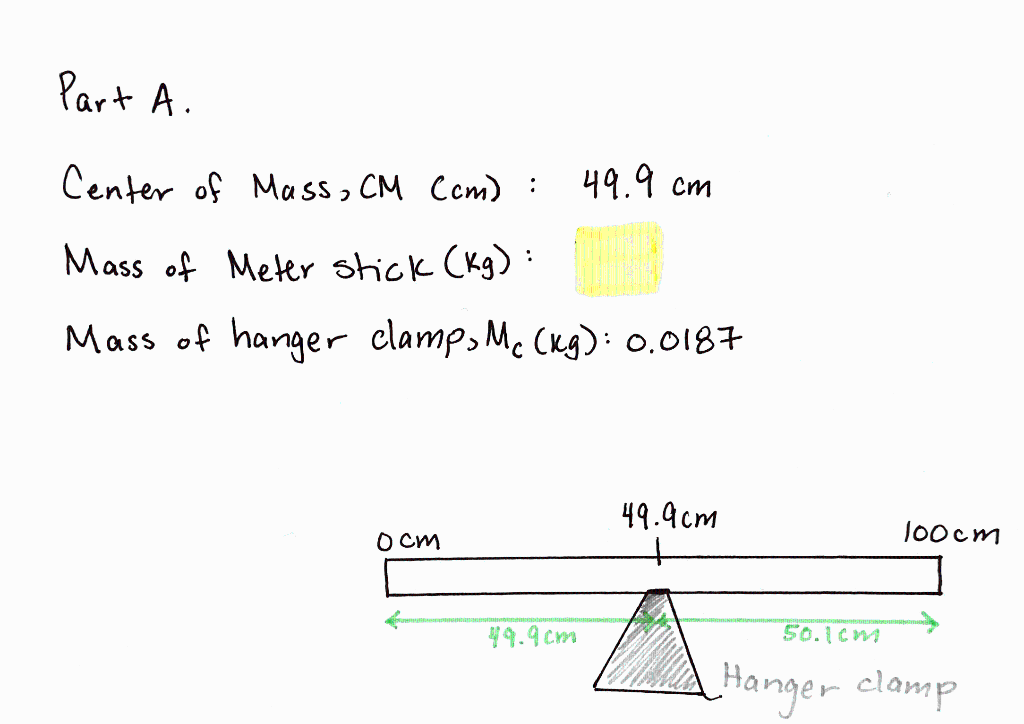 Part A.
Center of Mass, CM (cm) : 49.9 cm
Mass of Meter stick (kg) :
Mass of hanger clamp, Mc (kg): 0.0187
49.9cm
0cm
100cm
49.9cm
50.1cm
Hanger clamp